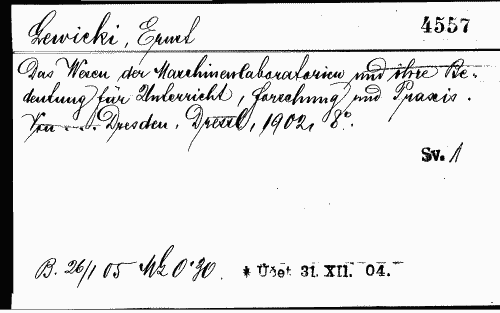 Lewicki, Ernst
4557
Das Wesen der Maschinenlaboratorien und ihre Be-
deutung für Unterricht, Forschung und Praxis.
Von ... Dresden, Dressel, 1902, 8°.
Sv. 1
B. 26/1 05 Mk 0·30. * Účet 31. XII. 04.